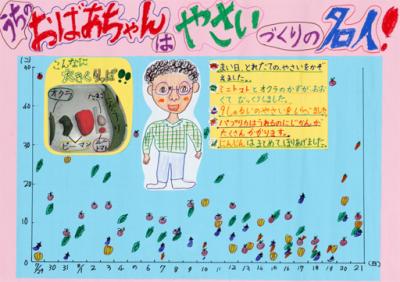 うちのおばあちゃんはやさいづくりの名人!
こんなに
大きくりっぱ!!
オクラ
ピーマン
まい日、とれたての、やさいをかぞ
えました。
ミニトマトとオクラのかずがおお
くて びっくりしました。
パプリカはうれるのにじかんが
たくさんかかります。
にんじんははじめてほりあげました。
(こ)
50
40
30
20
10
0
7/29 30 31 8/1 2 3 4 5 6 7 8 9 10 11 12 13 14 15 16 17 18 19 20 21 (日)